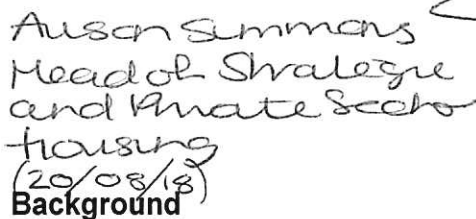 Alison Simmons
Head of Strategic
and Private Sector
Housing
(20/08/18)
Background